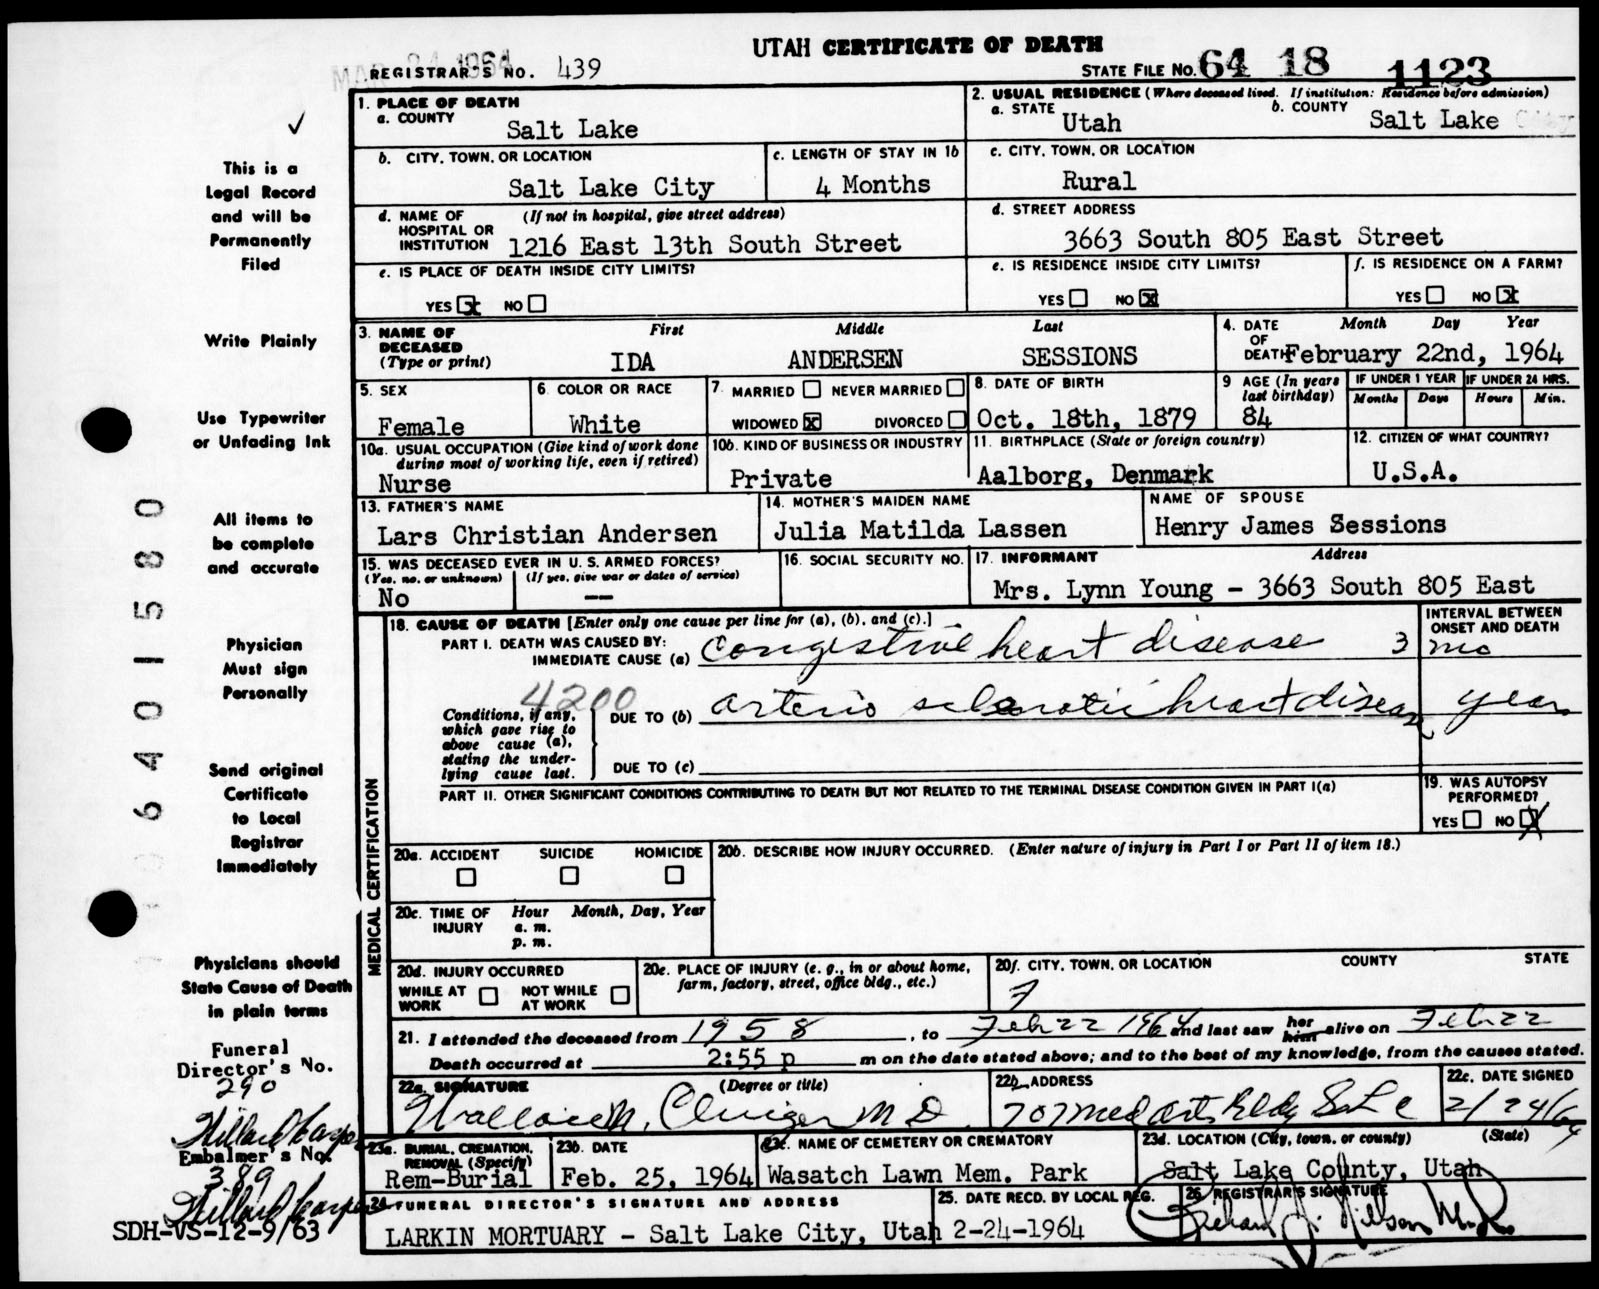 UTAH CERTIFICATE OF DEATH
MAR 24 1964
REGISTRAR'S NO. 439
STATE FILE NO. 64 18 1123
1. PLACE OF DEATH
a. COUNTY
Salt Lake
2. USUAL RESIDENCE (Where deceased lived. If institution: Residence before admission)
a. STATE Utah
b. COUNTY Salt Lake City
b. CITY, TOWN, OR LOCATION
Salt Lake City
c. LENGTH OF STAY IN 1b
4 Months
c. CITY, TOWN, OR LOCATION
Rural
d. NAME OF HOSPITAL OR INSTITUTION (If not in hospital, give street address)
1216 East 13th South Street
d. STREET ADDRESS
3663 South 805 East Street
e. IS PLACE OF DEATH INSIDE CITY LIMITS?
YES X NO
e. IS RESIDENCE INSIDE CITY LIMITS?
YES NO X
f. IS RESIDENCE ON A FARM?
YES NO X
3. NAME OF DECEASED (Type or print)
First Middle Last
IDA ANDERSEN SESSIONS
4. DATE OF DEATH Month Day Year
February 22nd, 1964
5. SEX
Female
6. COLOR OR RACE
White
7. MARRIED NEVER MARRIED
WIDOWED X DIVORCED
8. DATE OF BIRTH
Oct. 18th, 1879
9 AGE (In years last birthday)
84
IF UNDER 1 YEAR
Months Days
IF UNDER 24 HRS.
Hours Min.
10a. USUAL OCCUPATION (Give kind of work done during most of working life, even if retired)
Nurse
10b. KIND OF BUSINESS OR INDUSTRY
Private
11. BIRTHPLACE (State or foreign country)
Aalborg, Denmark
12. CITIZEN OF WHAT COUNTRY?
U.S.A.
13. FATHER'S NAME
Lars Christian Andersen
14. MOTHER'S MAIDEN NAME
Julia Matilda Lassen
NAME OF SPOUSE
Henry James Sessions
15. WAS DECEASED EVER IN U. S. ARMED FORCES?
(Yes, no, or unknown) (If yes, give war or dates of service)
No --
16. SOCIAL SECURITY NO.
17. INFORMANT Address
Mrs. Lynn Young - 3663 South 805 East
MEDICAL CERTIFICATION
18. CAUSE OF DEATH [Enter only one cause per line for (a), (b), and (c).]
INTERVAL BETWEEN ONSET AND DEATH
PART I. DEATH WAS CAUSED BY:
IMMEDIATE CAUSE (a) Congestive heart disease 3 mo
4200
Conditions, if any, which gave rise to above cause (a), stating the underlying cause last.
DUE TO (b) arterio sclerotic heart disease years
DUE TO (c)
PART II. OTHER SIGNIFICANT CONDITIONS CONTRIBUTING TO DEATH BUT NOT RELATED TO THE TERMINAL DISEASE CONDITION GIVEN IN PART I(a)
19. WAS AUTOPSY PERFORMED?
YES NO X
20a. ACCIDENT SUICIDE HOMICIDE
20b. DESCRIBE HOW INJURY OCCURRED. (Enter nature of injury in Part I or Part II of item 18.)
20c. TIME OF INJURY Hour Month, Day, Year
a. m.
p. m.
20d. INJURY OCCURRED
WHILE AT WORK NOT WHILE AT WORK
20e. PLACE OF INJURY (e. g., in or about home, farm, factory, street, office bldg., etc.)
20f. CITY, TOWN, OR LOCATION COUNTY STATE
21. I attended the deceased from 1958, to Feb 22 1964 and last saw her him alive on Feb 22
Death occurred at 2:55 p m on the date stated above; and to the best of my knowledge, from the causes stated.
22a. SIGNATURE (Degree or title)
Wallace M. M D
22b. ADDRESS
707 Med arts Bldg S L C
22c. DATE SIGNED
2/24/64
23a. BURIAL, CREMATION, REMOVAL (Specify)
Rem-Burial
23b. DATE
Feb. 25, 1964
23c. NAME OF CEMETERY OR CREMATORY
Wasatch Lawn Mem. Park
23d. LOCATION (City, town, or county) (State)
Salt Lake County, Utah
24 FUNERAL DIRECTOR'S SIGNATURE AND ADDRESS
LARKIN MORTUARY - Salt Lake City, Utah
25. DATE RECD. BY LOCAL REG.
2-24-1964
26 REGISTRAR'S SIGNATURE
This is a
Legal Record
and will be
Permanently
Filed
Write Plainly
Use Typewriter
or Unfading Ink
All items to
be complete
and accurate
Physician
Must sign
Personally
Send original
Certificate
to Local
Registrar
Immediately
Physicians should
State Cause of Death
in plain terms
Funeral
Director's No.
290
Embalmer's No.
389
SDH-VS-12-9/63
6401580